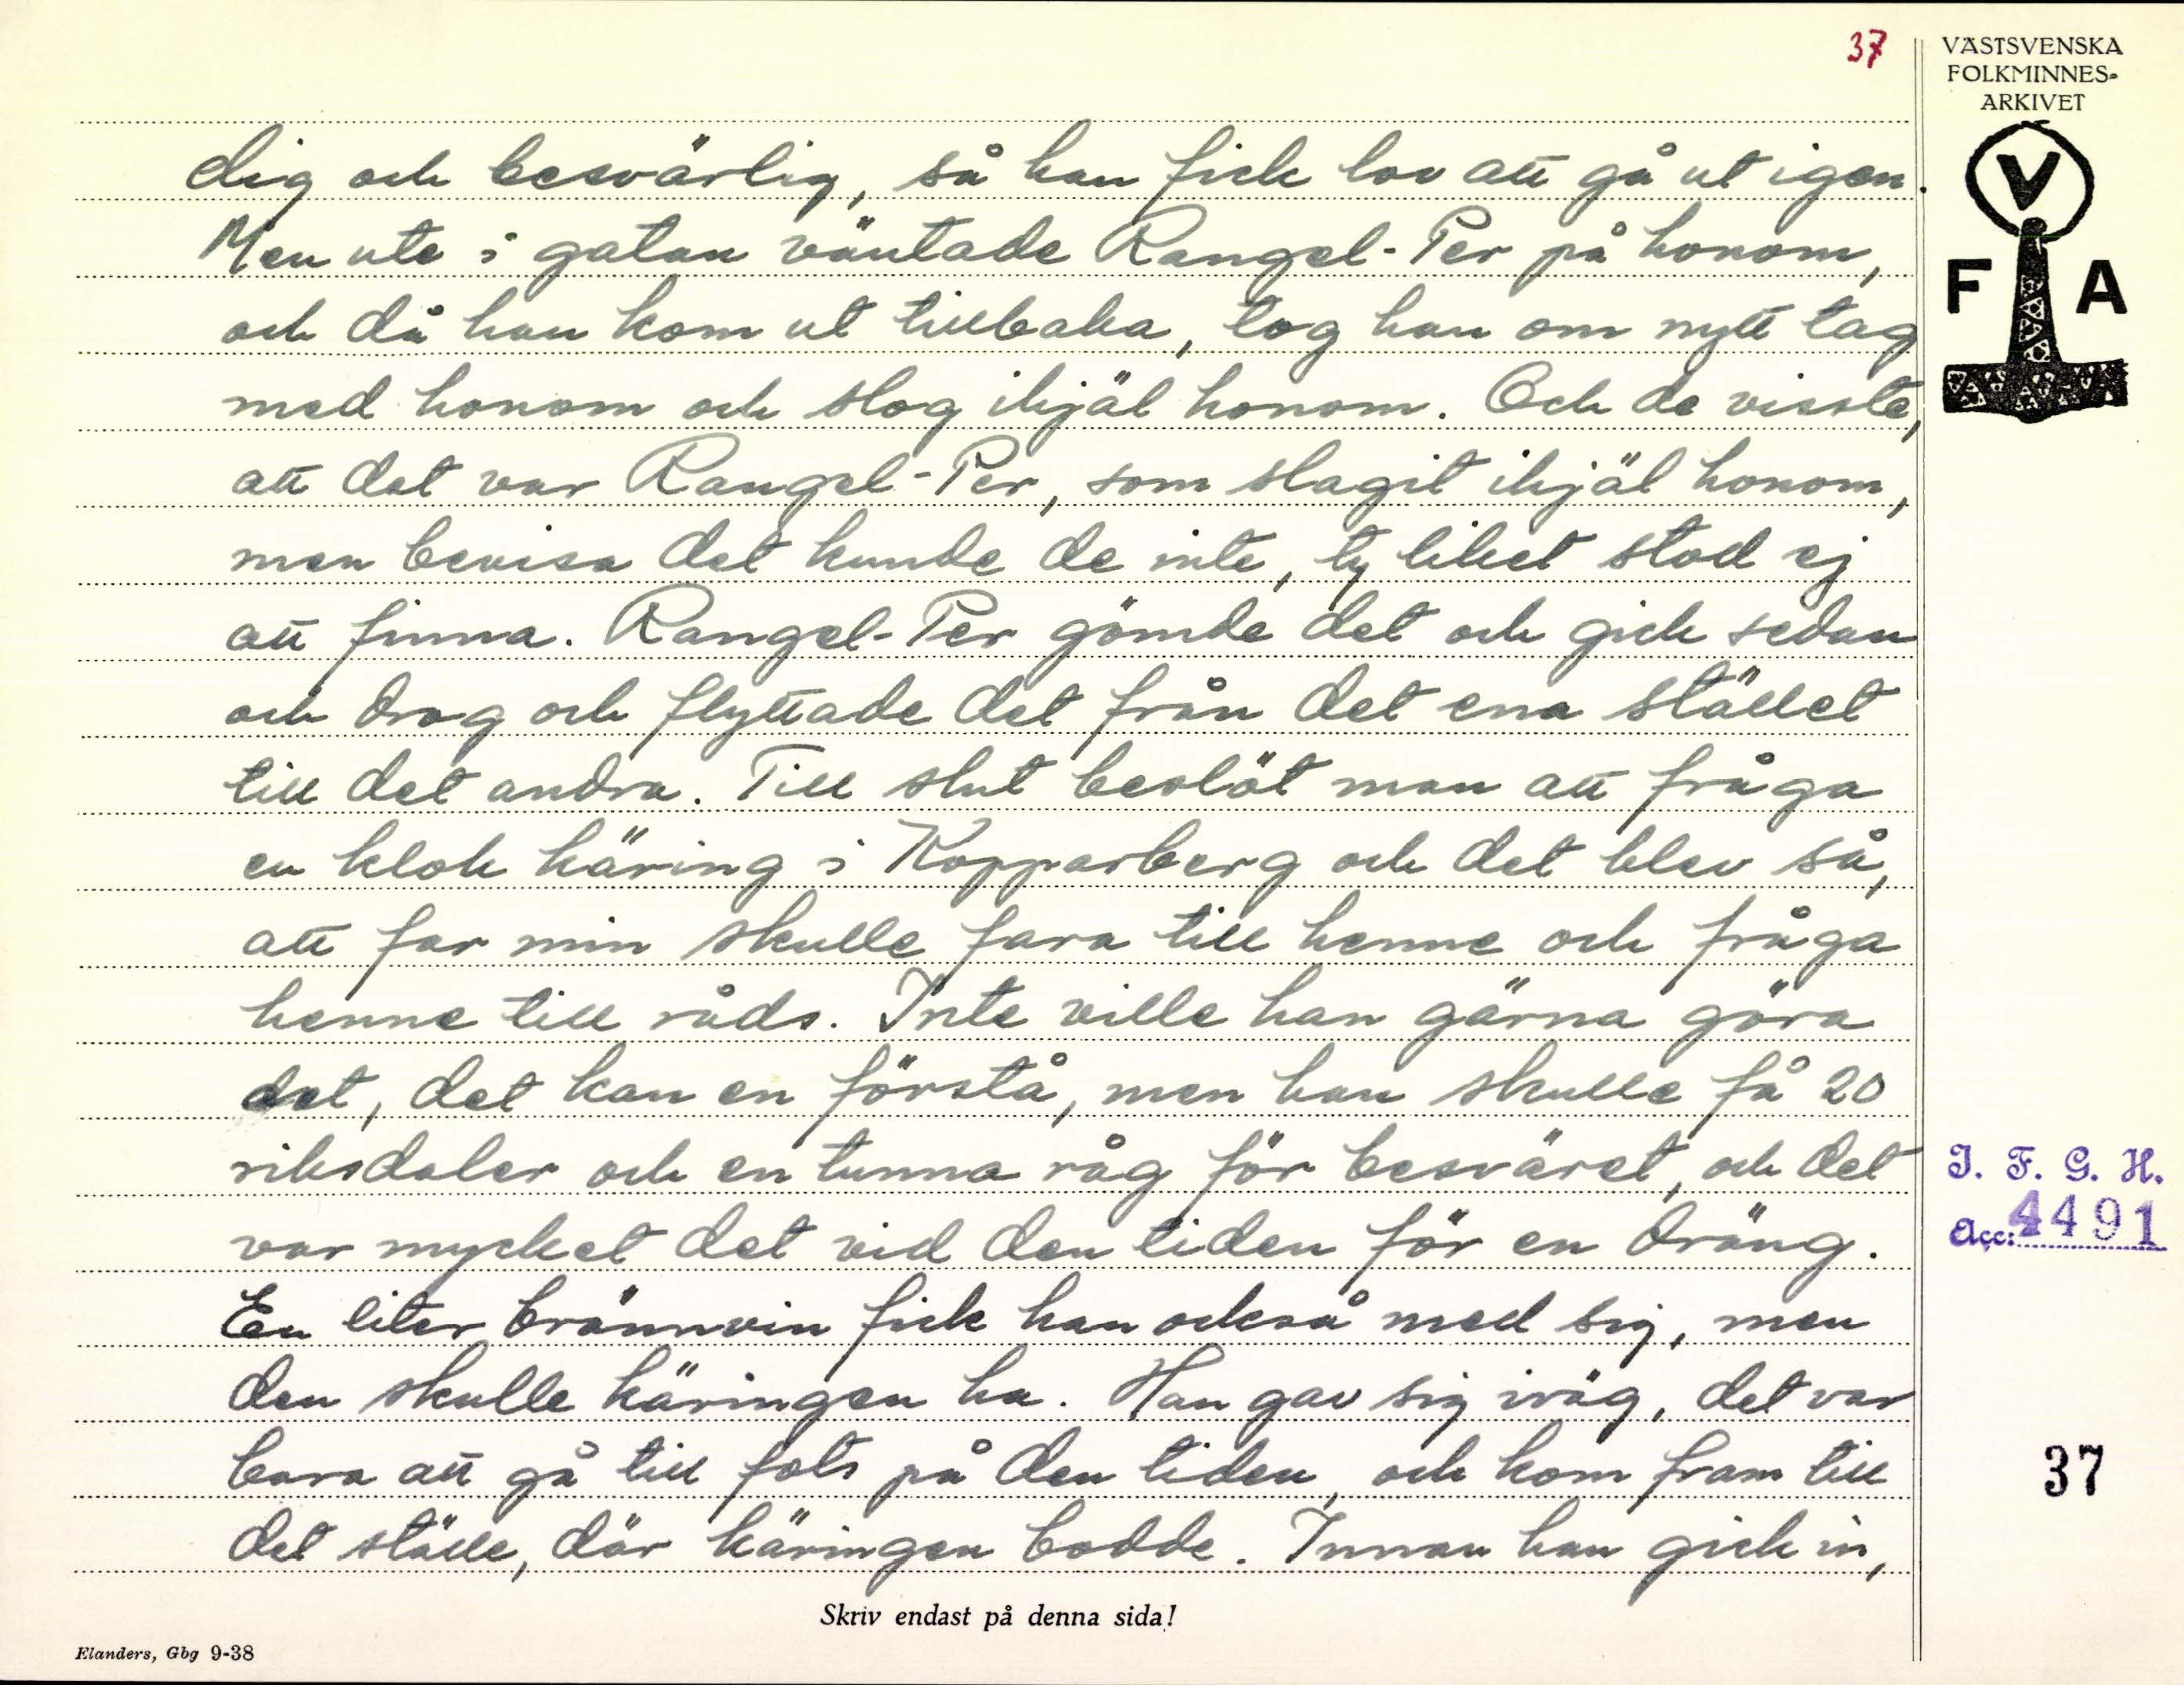 37
VÄSTSVENSKA
FOLKMINNES-
ARKIVET
V
F A
dig och besvärlig, så han fick lov att gå ut igen.
Men ute i gatan väntade Rangel-Per på honom,
och då han kom ut tillbaka, tog han om nytt tag
med honom och slog ihjäl honom. Och de visste,
att det var Rangel-Per, som slagit ihjäl honom,
men bevisa det kunde de inte, ty liket stod ej
att finna. Rangel-Per gömde det och gick sedan
och drog och flyttade det från det ena stället
till det andra. Till slut beslöt man att fråga
en klok käring i Kopparberg och det blev så,
att far min skulle fara till henne och fråga
henne till råds. Inte ville han gärna göra
det, det kan en förstå, men han skulle få 20
riksdaler och en tunna råg för besväret, och det
var mycket det vid den tiden för en dräng.
En liter brännvin fick han också med sig, men
den skulle käringen ha. Han gav sig iväg, det var
bara att gå till fots på den tiden, och kom fram till
det ställe, där käringen bodde. Innan han gick in,
I. F. G. H.
Acc: 4491
37
Skriv endast på denna sida!
Elanders, Gbg 9-38